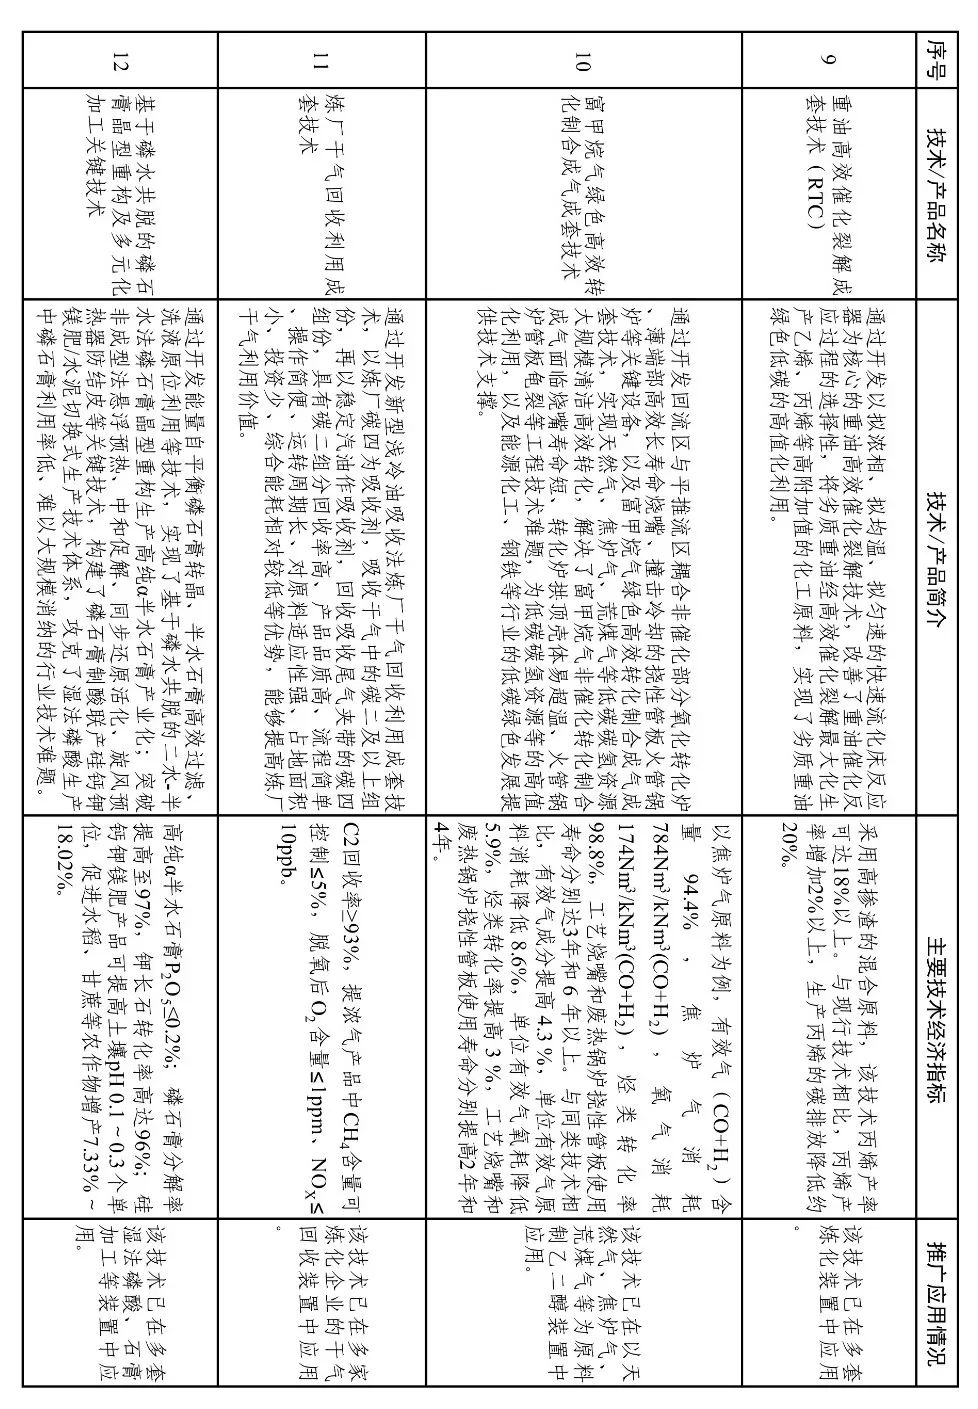 序号
技术/产品名称
技术/产品简介
主要技术经济指标
推广应用情况
9
重油高效催化裂解成
套技术（RTC）
通过开发以拟浓相、拟均温、拟匀速的快速流化床反应
器为核心的重油高效催化裂解技术，改善了重油催化反
应过程的选择性，将劣质重油经高效催化裂解最大化生
产乙烯、丙烯等高附加值的化工原料，实现了劣质重油
绿色低碳的高值化利用。
采用高掺渣的混合原料，该技术丙烯产率
可达18%以上。与现行技术相比，丙烯产
率增加2%以上，生产丙烯的碳排放降低约
20%。
该技术已在多套
炼化装置中应用
。
10
富甲烷气绿色高效转
化制合成气成套技术
通过开发回流区与平推流区耦合非催化部分氧化转化炉
、薄端部高效长寿命烧嘴、撞击冷却的挠性管板火管锅
炉等关键设备，以及富甲烷气绿色高效转化制合成气成
套技术，实现天然气、焦炉气、荒煤气等低碳碳氢资源
大规模清洁高效转化，解决了富甲烷气非催化转化制合
成气面临烧嘴寿命短、转化炉拱顶壳体易超温、火管锅
炉管板龟裂等工程技术难题，为低碳碳氢资源等的高值
化利用，以及能源化工、钢铁等行业的低碳绿色发展提
供技术支撑。
以焦炉气原料为例，有效气（CO+H2）含
量 94.4%，焦炉气消耗
784Nm3/kNm3(CO+H2)，氧气消耗
174Nm3/kNm3(CO+H2)，烃类转化率
98.8%，工艺烧嘴和废热锅炉挠性管板使用
寿命分别达3年和6年以上。与同类技术相
比，有效气成分提高4.3%，单位有效气原
料消耗降低8.6%，单位有效气氧耗降低
5.9%，烃类转化率提高3%，工艺烧嘴和
废热锅炉挠性管板使用寿命分别提高2年和
4年。
该技术已在以天
然气、焦炉气、
荒煤气等为原料
制乙二醇装置中
应用。
11
炼厂干气回收利用成
套技术
通过开发新型浅冷油吸收法炼厂干气回收利用成套技
术，以炼厂碳四为吸收剂，吸收干气中的碳二及以上组
份，再以稳定汽油作吸收剂，回收吸收尾气夹带的碳四
组份，具有碳二组分回收率高、产品品质高、流程简单
、操作简便、运转周期长、对原料适应性强、占地面积
小、投资少、综合能耗相对较低等优势，能够提高炼厂
干气利用价值。
C2回收率≥93%，提浓气产品中CH4含量可
控制≤5%，脱氧后O2含量≤1ppm、NOX≤
10ppb。
该技术已在多家
炼化企业的干气
回收装置中应用
。
12
基于磷水共脱的磷石
膏晶型重构及多元化
加工关键技术
通过开发能量自平衡磷石膏转晶、半水石膏高效过滤、
洗液原位利用等技术，实现了基于磷水共脱的二水-半
水法磷石膏晶型重构生产高纯α半水石膏产业化；突破
非成型法悬浮预热、中和促解、同步还原活化、旋风预
热器防结皮等关键技术，构建了磷石膏制酸联产硅钙钾
镁肥/水泥切换式生产技术体系，攻克了湿法磷酸生产
中磷石膏利用率低、难以大规模消纳的行业技术难题。
高纯α半水石膏P2O5≤0.2%；磷石膏分解率
提高至97%，钾长石转化率高达96%；硅
钙钾镁肥产品可提高土壤pH 0.1～0.3个单
位，促进水稻、甘蔗等农作物增产7.33%～
18.02%。
该技术已在多套
湿法磷酸、石膏
加工等装置中应
用。